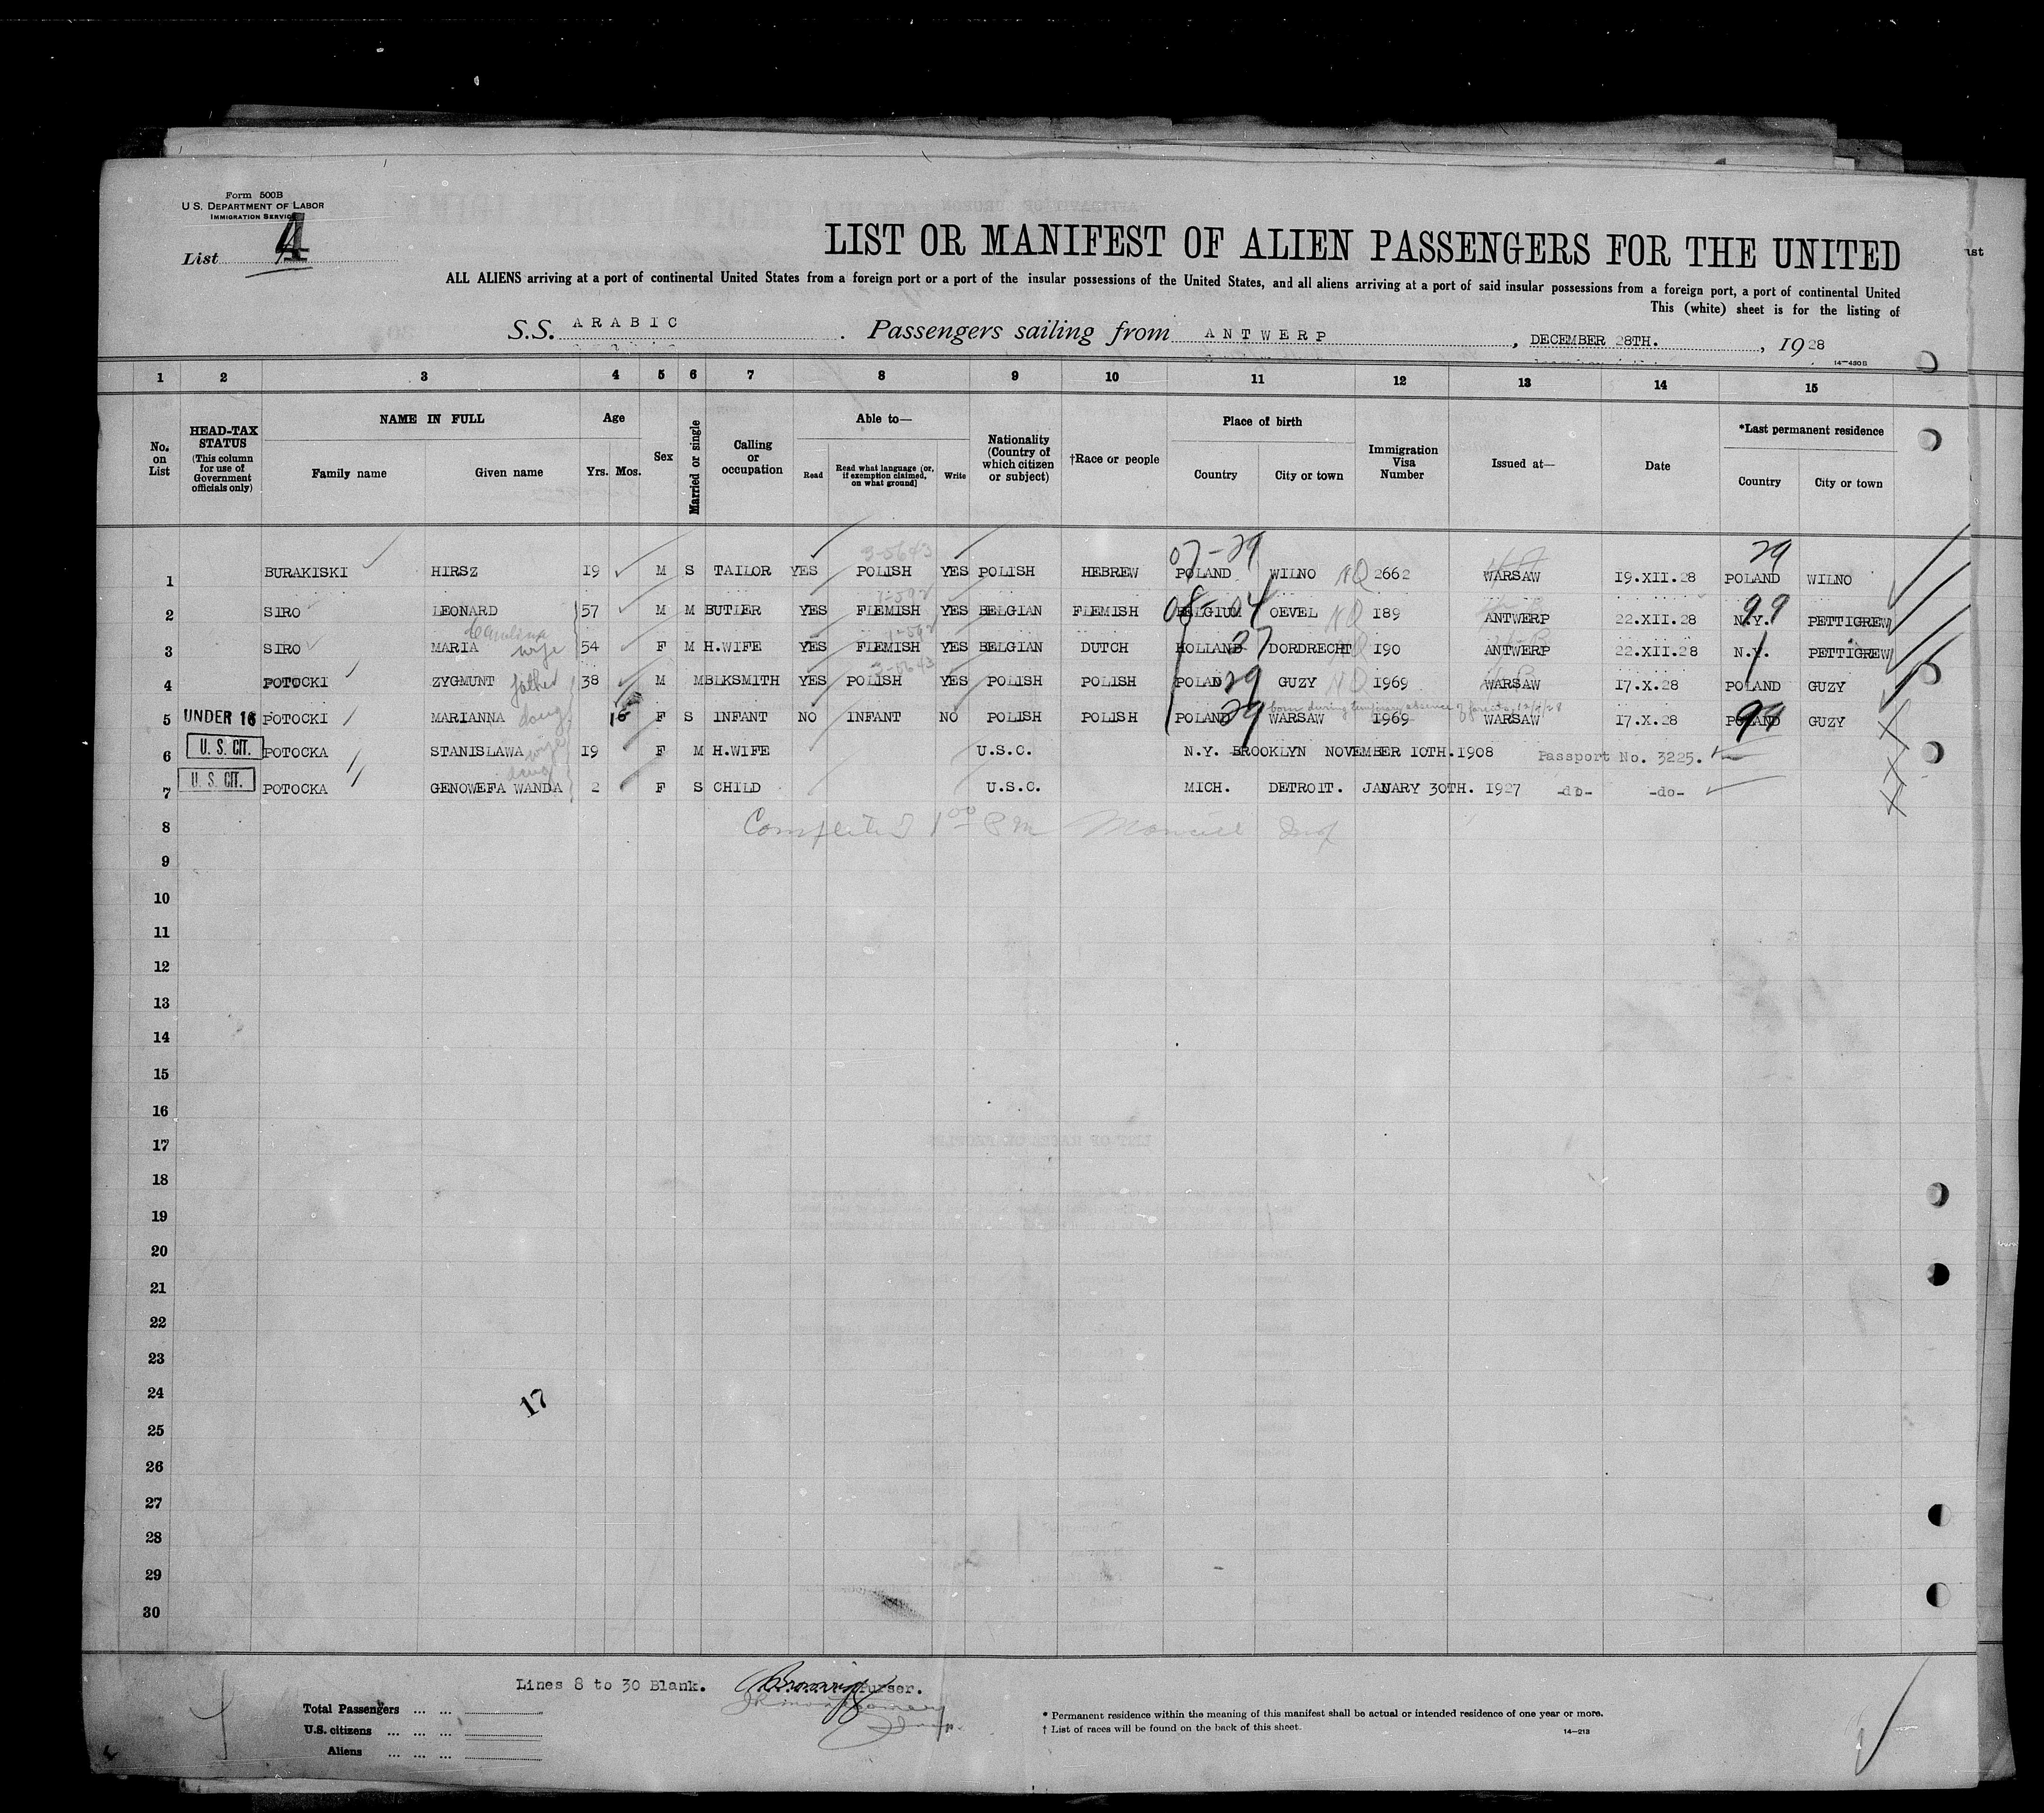 Form 500B
U. S. DEPARTMENT OF LABOR
IMMIGRATION SERVICE
List 4
LIST OR MANIFEST OF ALIEN PASSENGERS FOR THE UNITED
ALL ALIENS arriving at a port of continental United States from a foreign port or a port of the insular possessions of the United States, and all aliens arriving at a port of said insular possessions from a foreign port, a port of continental United
This (white) sheet is for the listing of
S.S. ARABIC. Passengers sailing from ANTWERP, DECEMBER 28TH., 1928
14-430B
1 2 3 4 5 6 7 8 9 10 11 12 13 14 15
No. on List
HEAD-TAX STATUS (This column for use of Government officials only)
NAME IN FULL
Family name Given name
Age
Yrs. Mos.
Sex
Married or single
Calling or occupation
Able to—
Read Read what language (or, if exemption claimed, on what ground) Write
Nationality (Country of which citizen or subject)
†Race or people
Place of birth
Country City or town
Immigration Visa Number
Issued at—
Date
*Last permanent residence
Country City or town
07-29 29
3-5643
1 BURAKISKI HIRSZ 19 M S TAILOR YES POLISH YES POLISH HEBREW POLAND WILNO NQ 2662 WARSAW 19.XII.28 POLAND WILNO
2 SIRO LEONARD 57 M M BUTLER YES FLEMISH YES BELGIAN FLEMISH BELGIUM OEVEL NQ 189 ANTWERP 22.XII.28 N.Y. PETTIGREW
08-04 99
Carolina
3 SIRO MARIA wife 54 F M H.WIFE YES FLEMISH YES BELGIAN DUTCH HOLLAND 27 DORDRECHT NQ 190 ANTWERP 22.XII.28 N.Y. PETTIGREW
3-5643
4 POTOCKI ZYGMUNT father 38 M M BLKSMITH YES POLISH YES POLISH POLISH POLAND 29 GUZY NQ 1969 WARSAW 17.X.28 POLAND GUZY
born during temporary absence of parents
5 UNDER 16 POTOCKI MARIANNA daug F S INFANT NO INFANT NO POLISH POLISH POLAND 29 WARSAW 1969 WARSAW 17.X.28 POLAND 99 GUZY
6 U. S. CIT. POTOCKA STANISLAWA wife 19 F M H.WIFE U.S.C. N.Y. BROOKLYN NOVEMBER 10TH.1908 Passport No. 3225.
daug
7 U. S. CIT. POTOCKA GENOWEFA WANDA 2 F S CHILD U.S.C. MICH. DETROIT. JANUARY 30TH. 1927 -do- -do-
8 Completed 1 00 PM
9
10
11
12
13
14
15
16
17
18
19
20
21
22
23
24
17
25
26
27
28
29
30
Lines 8 to 30 Blank. Purser.
Total Passengers
U.S. citizens
Aliens
* Permanent residence within the meaning of this manifest shall be actual or intended residence of one year or more.
† List of races will be found on the back of this sheet.
14—213